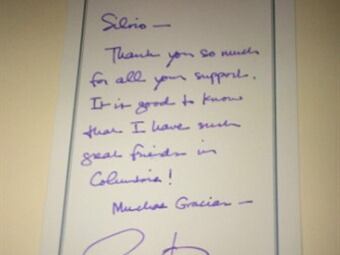 Silvio —
Thank you so much
for all your support.
It is good to know
that I have such
great friends in
Columbia!
Muchas Gracias —